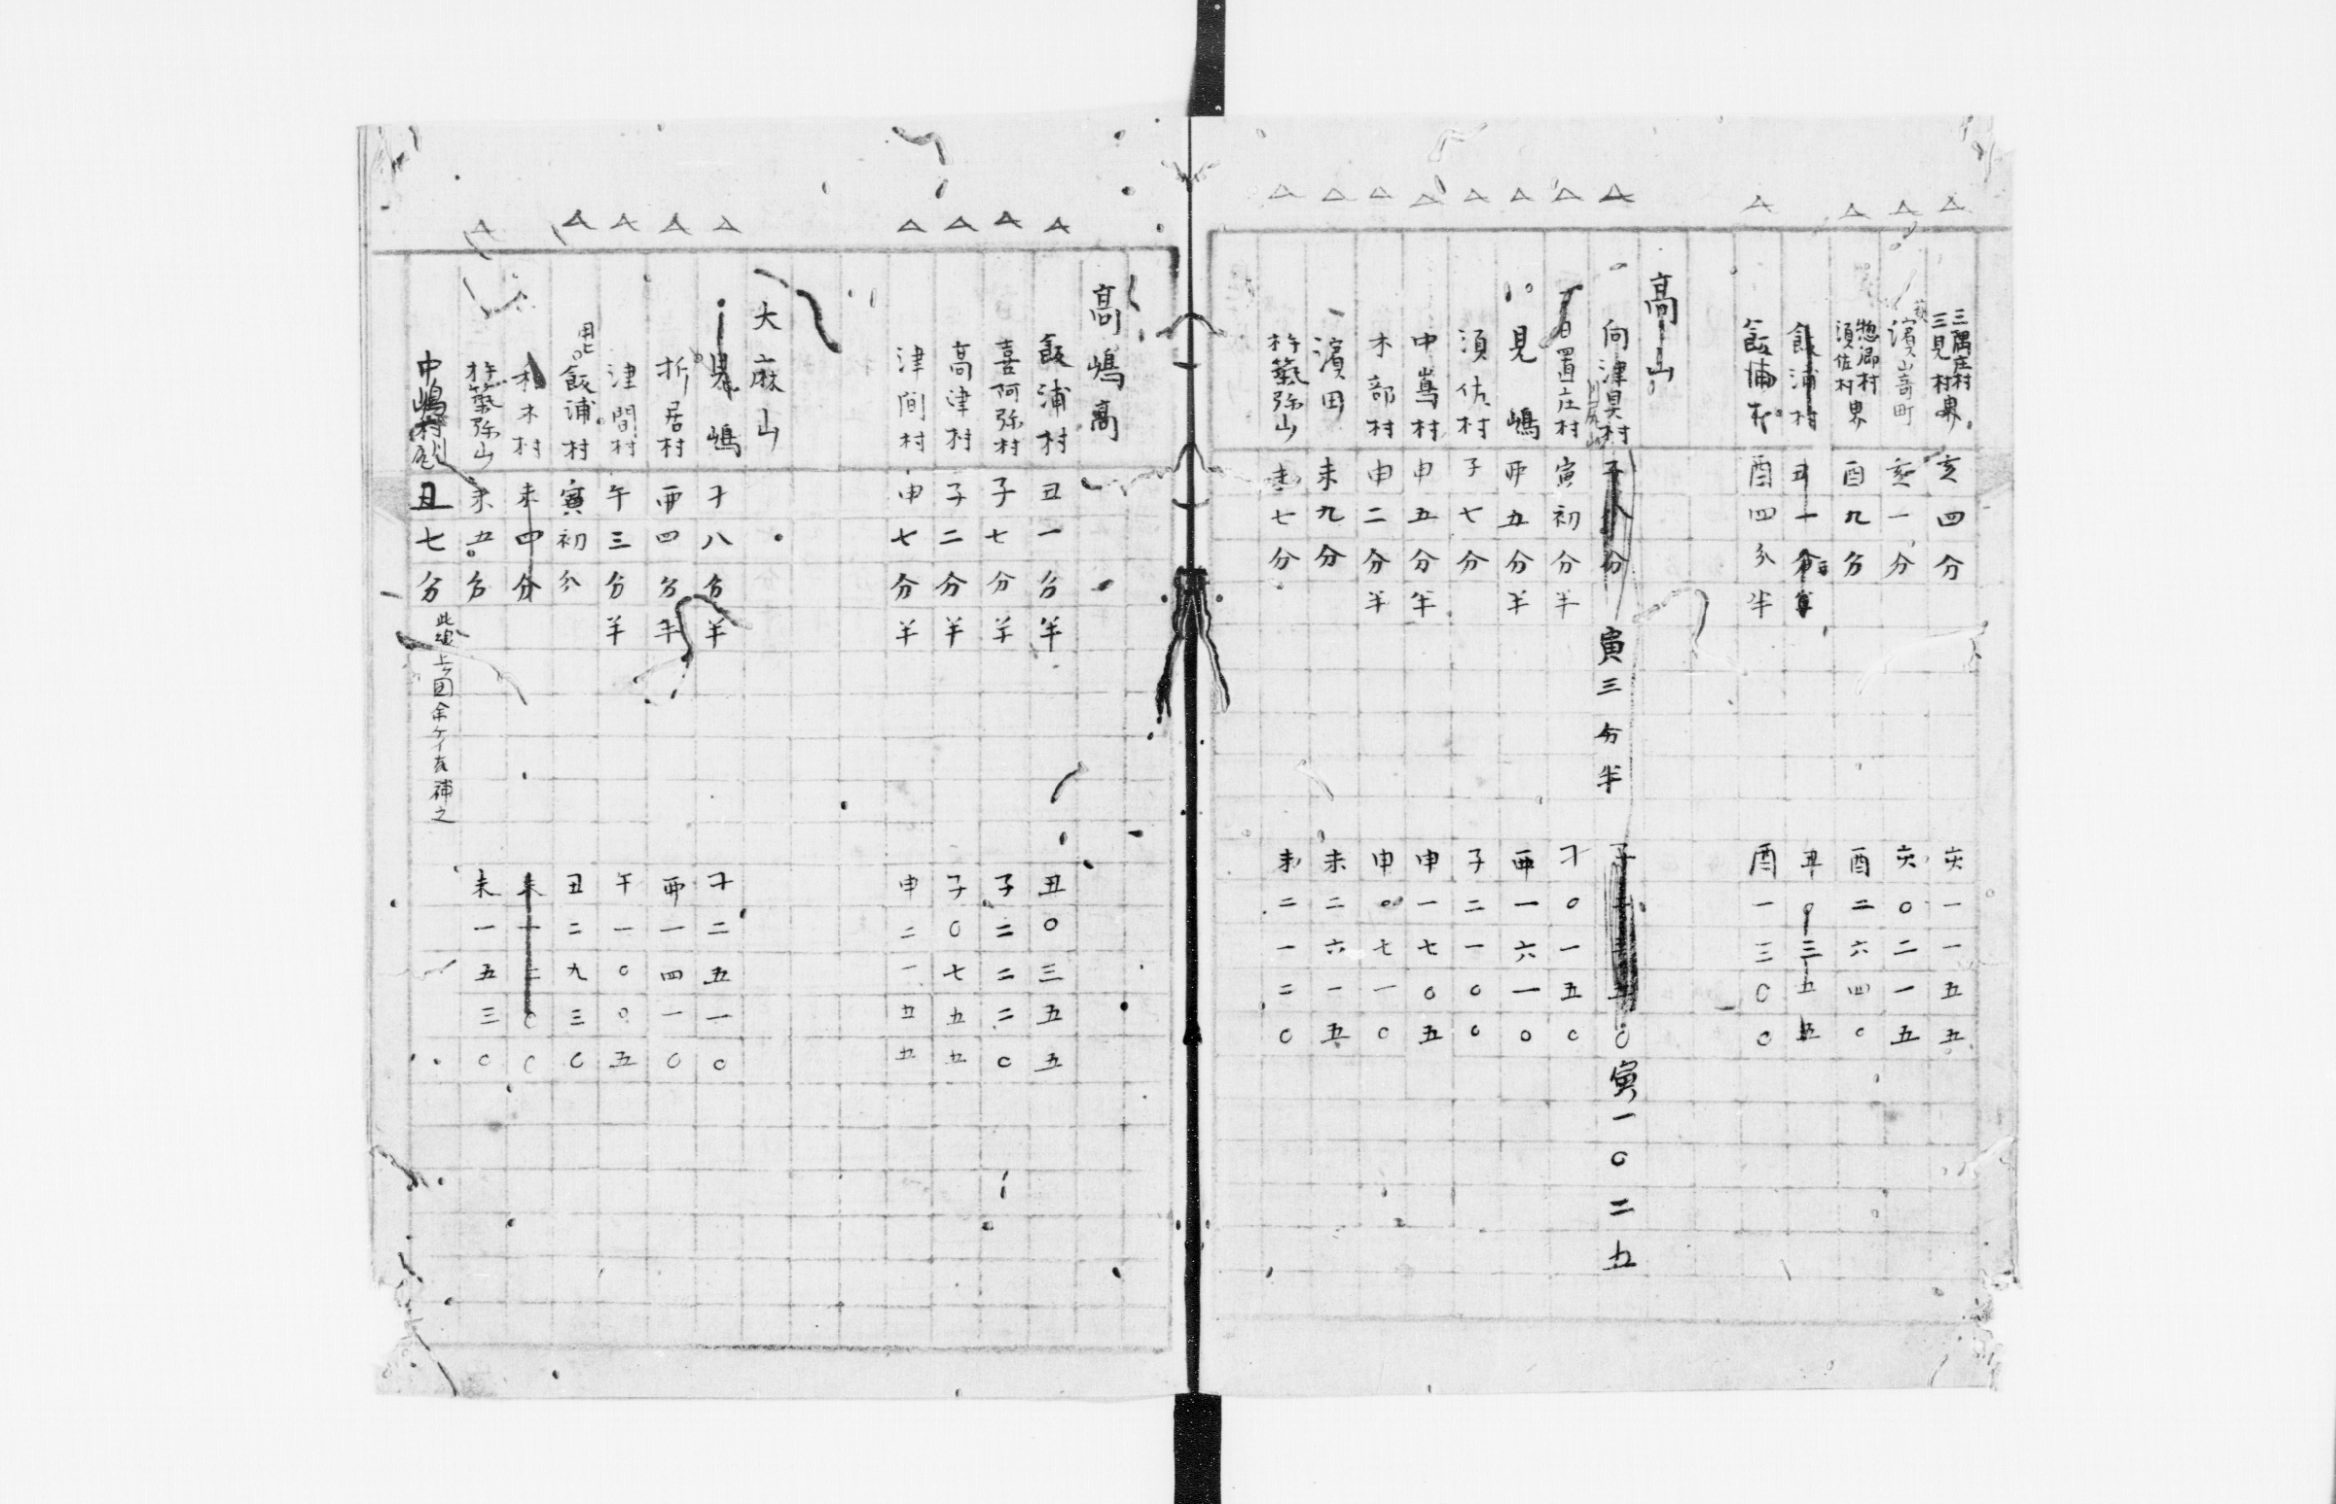 三隅庄村 三見村 界 亥四分 亥一一五五
濱崎町 亥一分 亥〇二一五
惣郷村 須佐村 界 酉九分 酉二六四〇
飯浦村 丑一分 丑〇三五五
飯浦村 酉四分半 酉一三〇〇
高山
向津具村 子 分 寅三分半 子 〇 寅一〇二五
日置庄村 寅初分半 寅〇一五〇
見嶋 酉五分半 酉一六一〇
須佐村 子七分 子二一〇〇
中嶌村 申五分半 申一七〇五
木部村 申二分半 申〇七一〇
濱田 未九分 未二六一五
杵築弥山 未七分 未二一二〇
高嶋高
飯浦村 丑一分半 丑〇三五五
喜阿弥村 子七分半 子二二二〇
高津村 子二分半 子〇七五五
津間村 申七分半 申二一五五
大麻山
見嶋 寅八分半 寅二五一〇
折居村 酉四分半 酉一四一〇
津間村 午三分半 午一〇〇五
用ヒ 飯浦村 寅初分 丑二九三〇
木村 未四分 未一二〇〇
杵築弥山 未五分 未一五三〇
中嶋村 丑七分